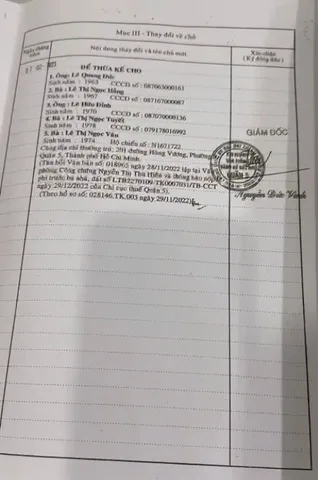 Mục III - Thay đổi về chủ
Ngày tháng năm
Nội dung thay đổi và tên chủ mới
Xác nhận
(Ký đóng dấu)
ĐỂ THỪA KẾ CHO
1. Ông: Lê Quang Đức
Sinh năm : 1963 CCCD số : 087063000161
2. Bà : Lê Thị Ngọc Hằng
Sinh năm : 1967 CCCD số : 087167000087
3. Ông : Lê Hữu Đỉnh
Sinh năm : 1970 CCCD số : 087070000136
4. Bà : Lê Thị Ngọc Tuyết
Sinh năm : 1978 CCCD số : 079178016992
5. Bà : Lê Thị Ngọc Vân
Sinh năm : 1974 Hộ chiếu số : N1671722
Cùng địa chỉ thường trú : đường Hùng Vương, Phường
Quận 5, Thành phố Hồ Chí Minh.
(Theo bổi Văn bản số: 018965 ngày 28/11/2022 lập tại Văn
phòng Công chứng Nguyễn Thị Thu Hiền và thông báo nộp
phí trước bạ nhà, đất số LTB2270109-TK0067031/TB-CCT
ngày 29/12/2022 của Chi cục thuế Quận 5).
(Theo hồ sơ số: 028146.TK.003 ngày 29/11/2022)
GIÁM ĐỐC
QUẬN 5
Nguyễn Đức Vinh